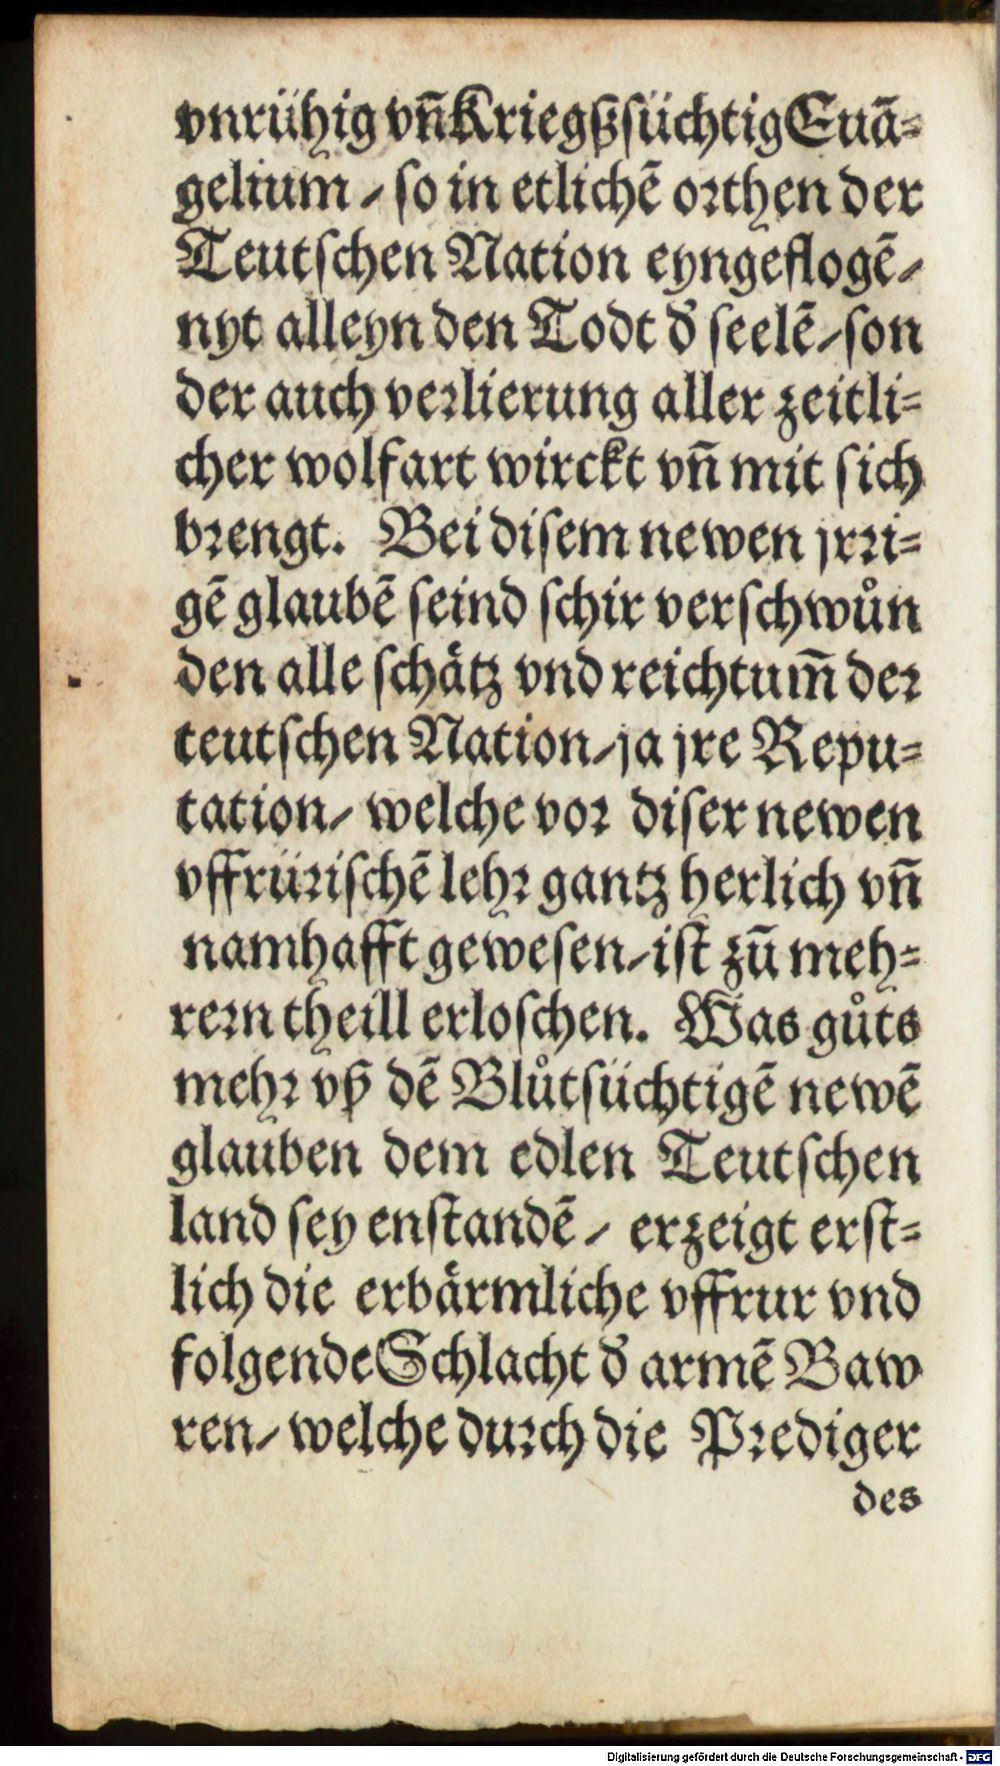 vnrühig vn̄ Kriegßsüchtig Euā⸗
gelium / so in etlichē orthen der
Teutschen Nation eyngeflogē /
nyt alleyn den Todt d̕ seelē / son
der auch verlierung aller zeitli⸗
cher wolfart wirckt vn̄ mit sich
brengt. Bei disem newen jrri⸗
gē glaubē seind schir verschwůn
den alle schätz vnd reichtum̄ der
teutschen Nation / ja jre Repu⸗
tation / welche vor diser newen
vffrürischē lehr gantz herlich vn̄
namhafft gewesen / ist zū meh⸗
rern theill erloschen. Was gůts
mehr vß dē Blůtsüchtigē newē
glauben dem edlen Teutschen
land sey enstandē / erzeigt erst⸗
lich die erbärmliche vffrur vnd
folgende Schlacht d̕ armē Baw
ren / welche durch die Prediger
des
Digitalisierung gefördert durch die Deutsche Forschungsgemeinschaft - DFG